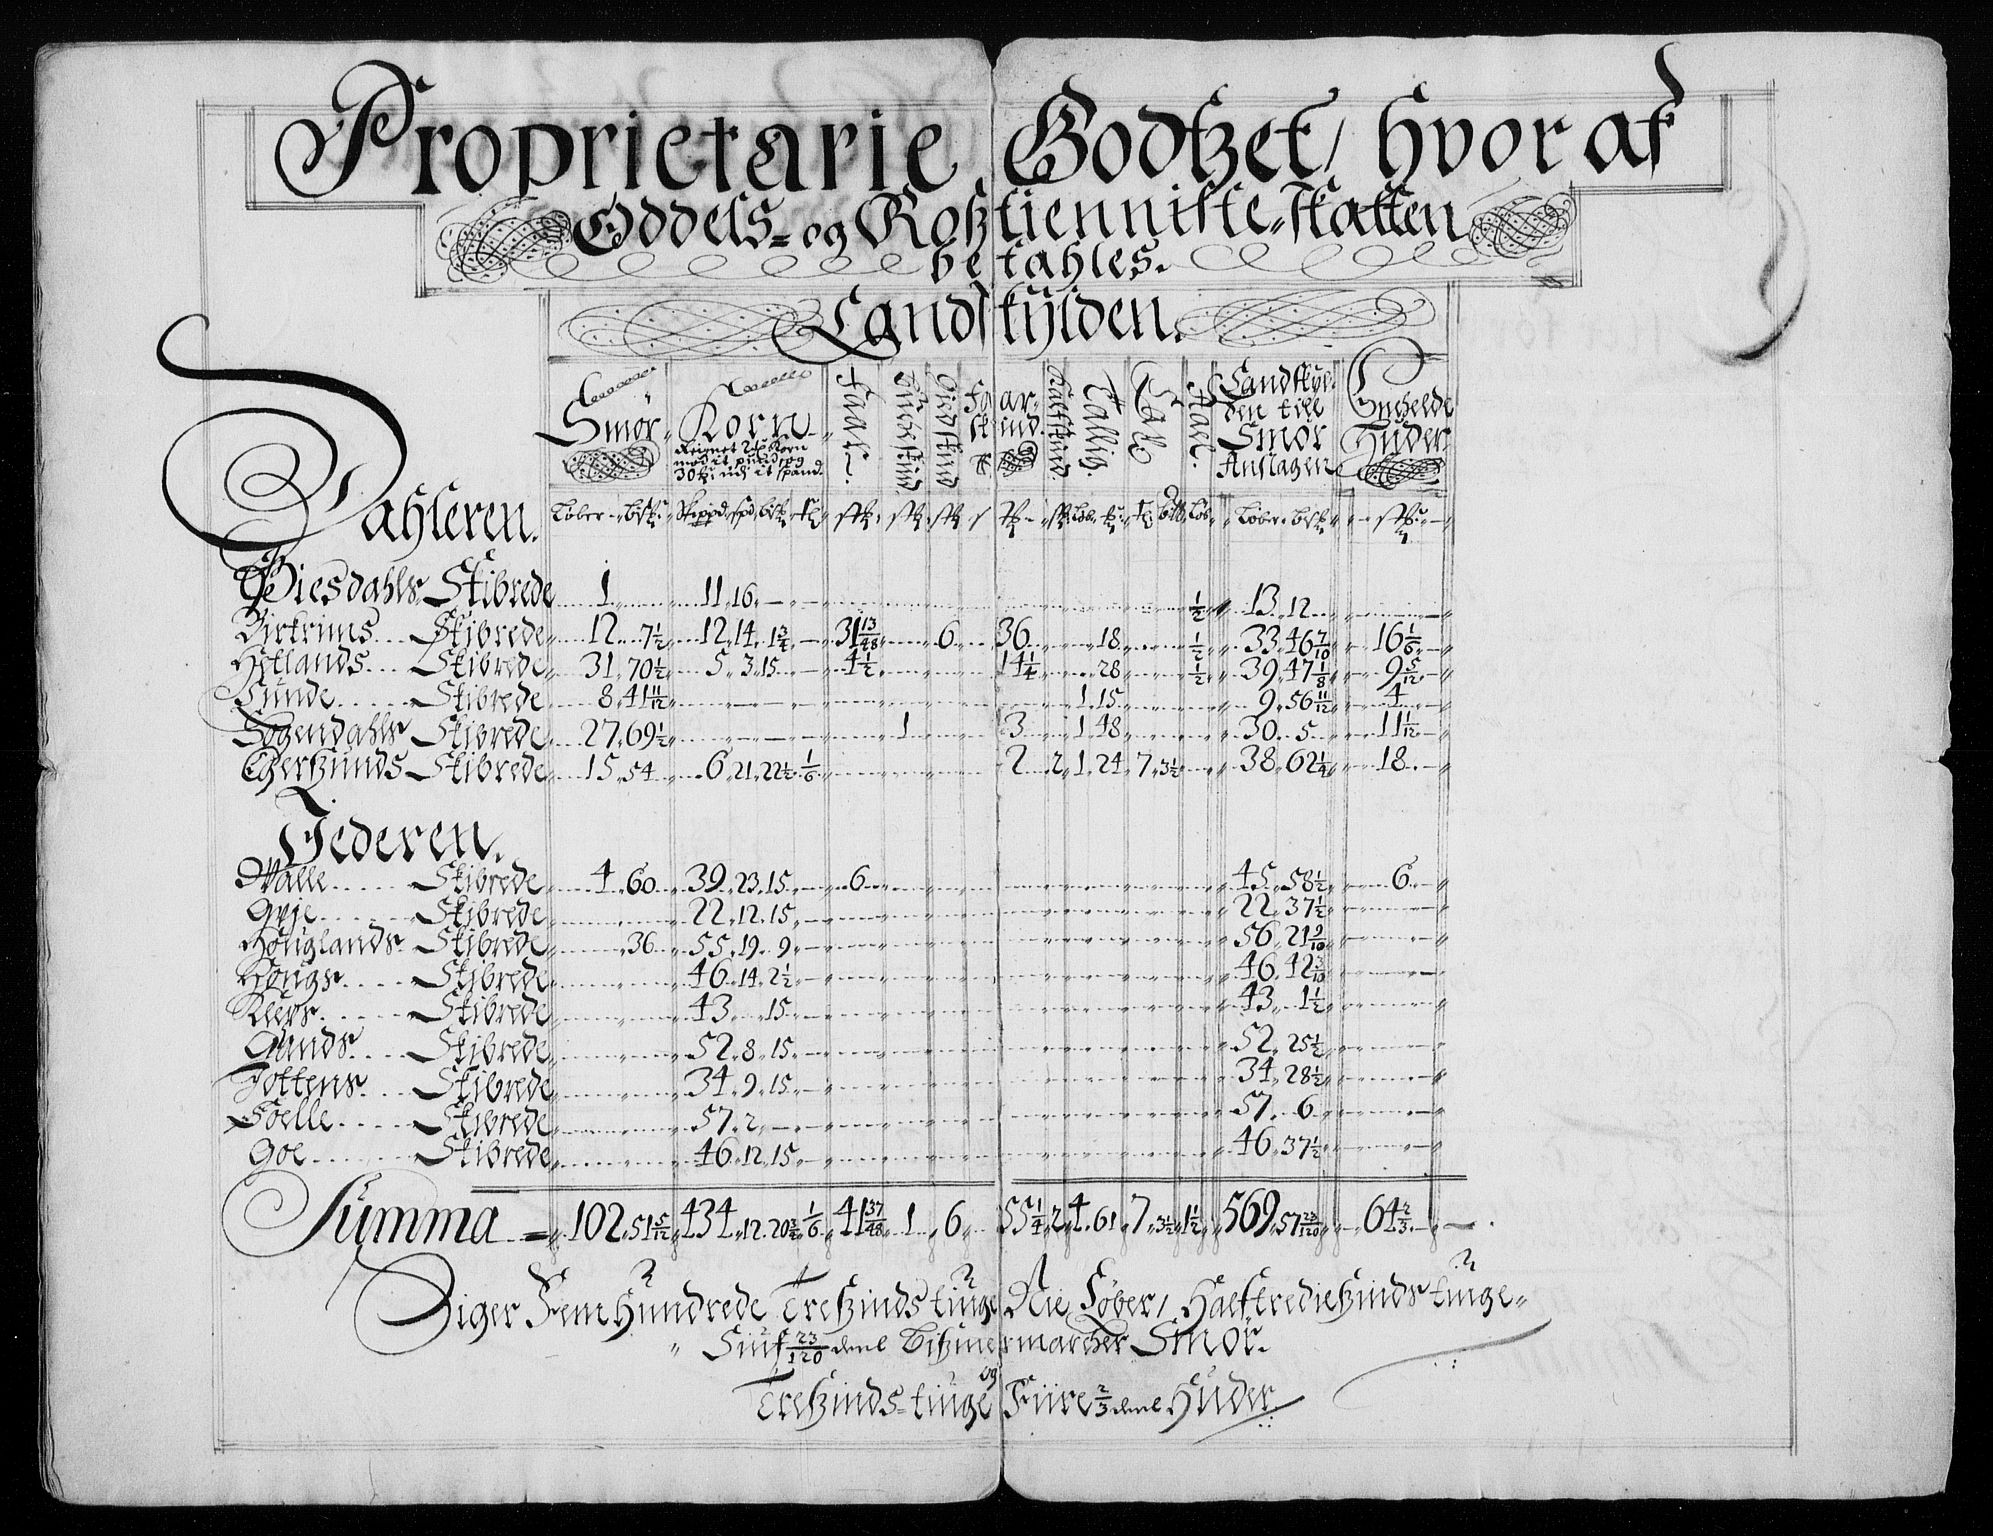 Proprietarie Godtzet, hvoraf
Oddels- og Rosztienniste-skatten
betahles.
Landskylden.
Smør Korn Faar Buckskind Giedskind Faarskind Kalfskind Tallig Landskylden till Smør Anslagen Huder
Reignet 2 Korn mod it pund og 30 ud it spand
Dahleren. Løber bisk Skippd spd bisk stk stk stk stk Løber bisk stk
Giesdahls Skibrede 1 11 16 1/2 13 12
Birkrims Skibrede 12 7 1/2 12 14 1 3/4 31 13/48 6 36 18 1/2 33 46 7/10 16 1/6
Hetlands Skibrede 31 70 1/2 5 3 15 4 1/2 14 1/4 28 1/2 39 47 1/8 9 5/12
Sunde Skibrede 8 41 11/12 1 15 9 56 11/12 4
Sogendahls Skibrede 27 69 1/2 1 3 1 48 30 5 11 1/12
Egerszunds Skibrede 15 54 6 21 22 1/2 1/6 2 2 1 24 7 3 1/2 38 62 1/4 18
Jederen.
Walle Skibrede 4 60 39 23 15 6 45 58 1/2 6
Qvje Skibrede 22 12 15 22 37 1/2
Houglands Skibrede 36 55 19 9 56 21 9/10
Hougs Skibrede 46 14 2 1/2 46 42 3/10
Kleps Skibrede 43 15 43 1 1/2
Gands Skibrede 52 8 15 52 25 1/2
Jottens Skibrede 34 9 15 34 28 1/2
Soelle Skibrede 57 2 57 6
Goe Skibrede 46 12 15 46 37 1/2
Summa 102 51 5/12 434 12 20 3/4 1/6 41 37/48 1 6 55 1/4 2 4 61 7 3 1/2 1 1/2 569 57 23/120 64 2/3
Siger Fem Hundrede Treszinds tiuge Nie Løber, Halftredieszinds tiuge
Siuf 23/120 deel Biszmermarcher Smør.
Treszinds-tiuge og Fiire 2/3 deel Huder